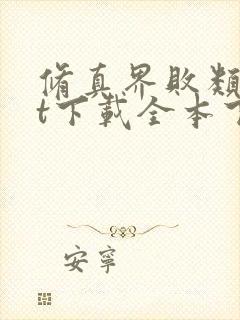 脩真界敗類
t下載全本
安寧